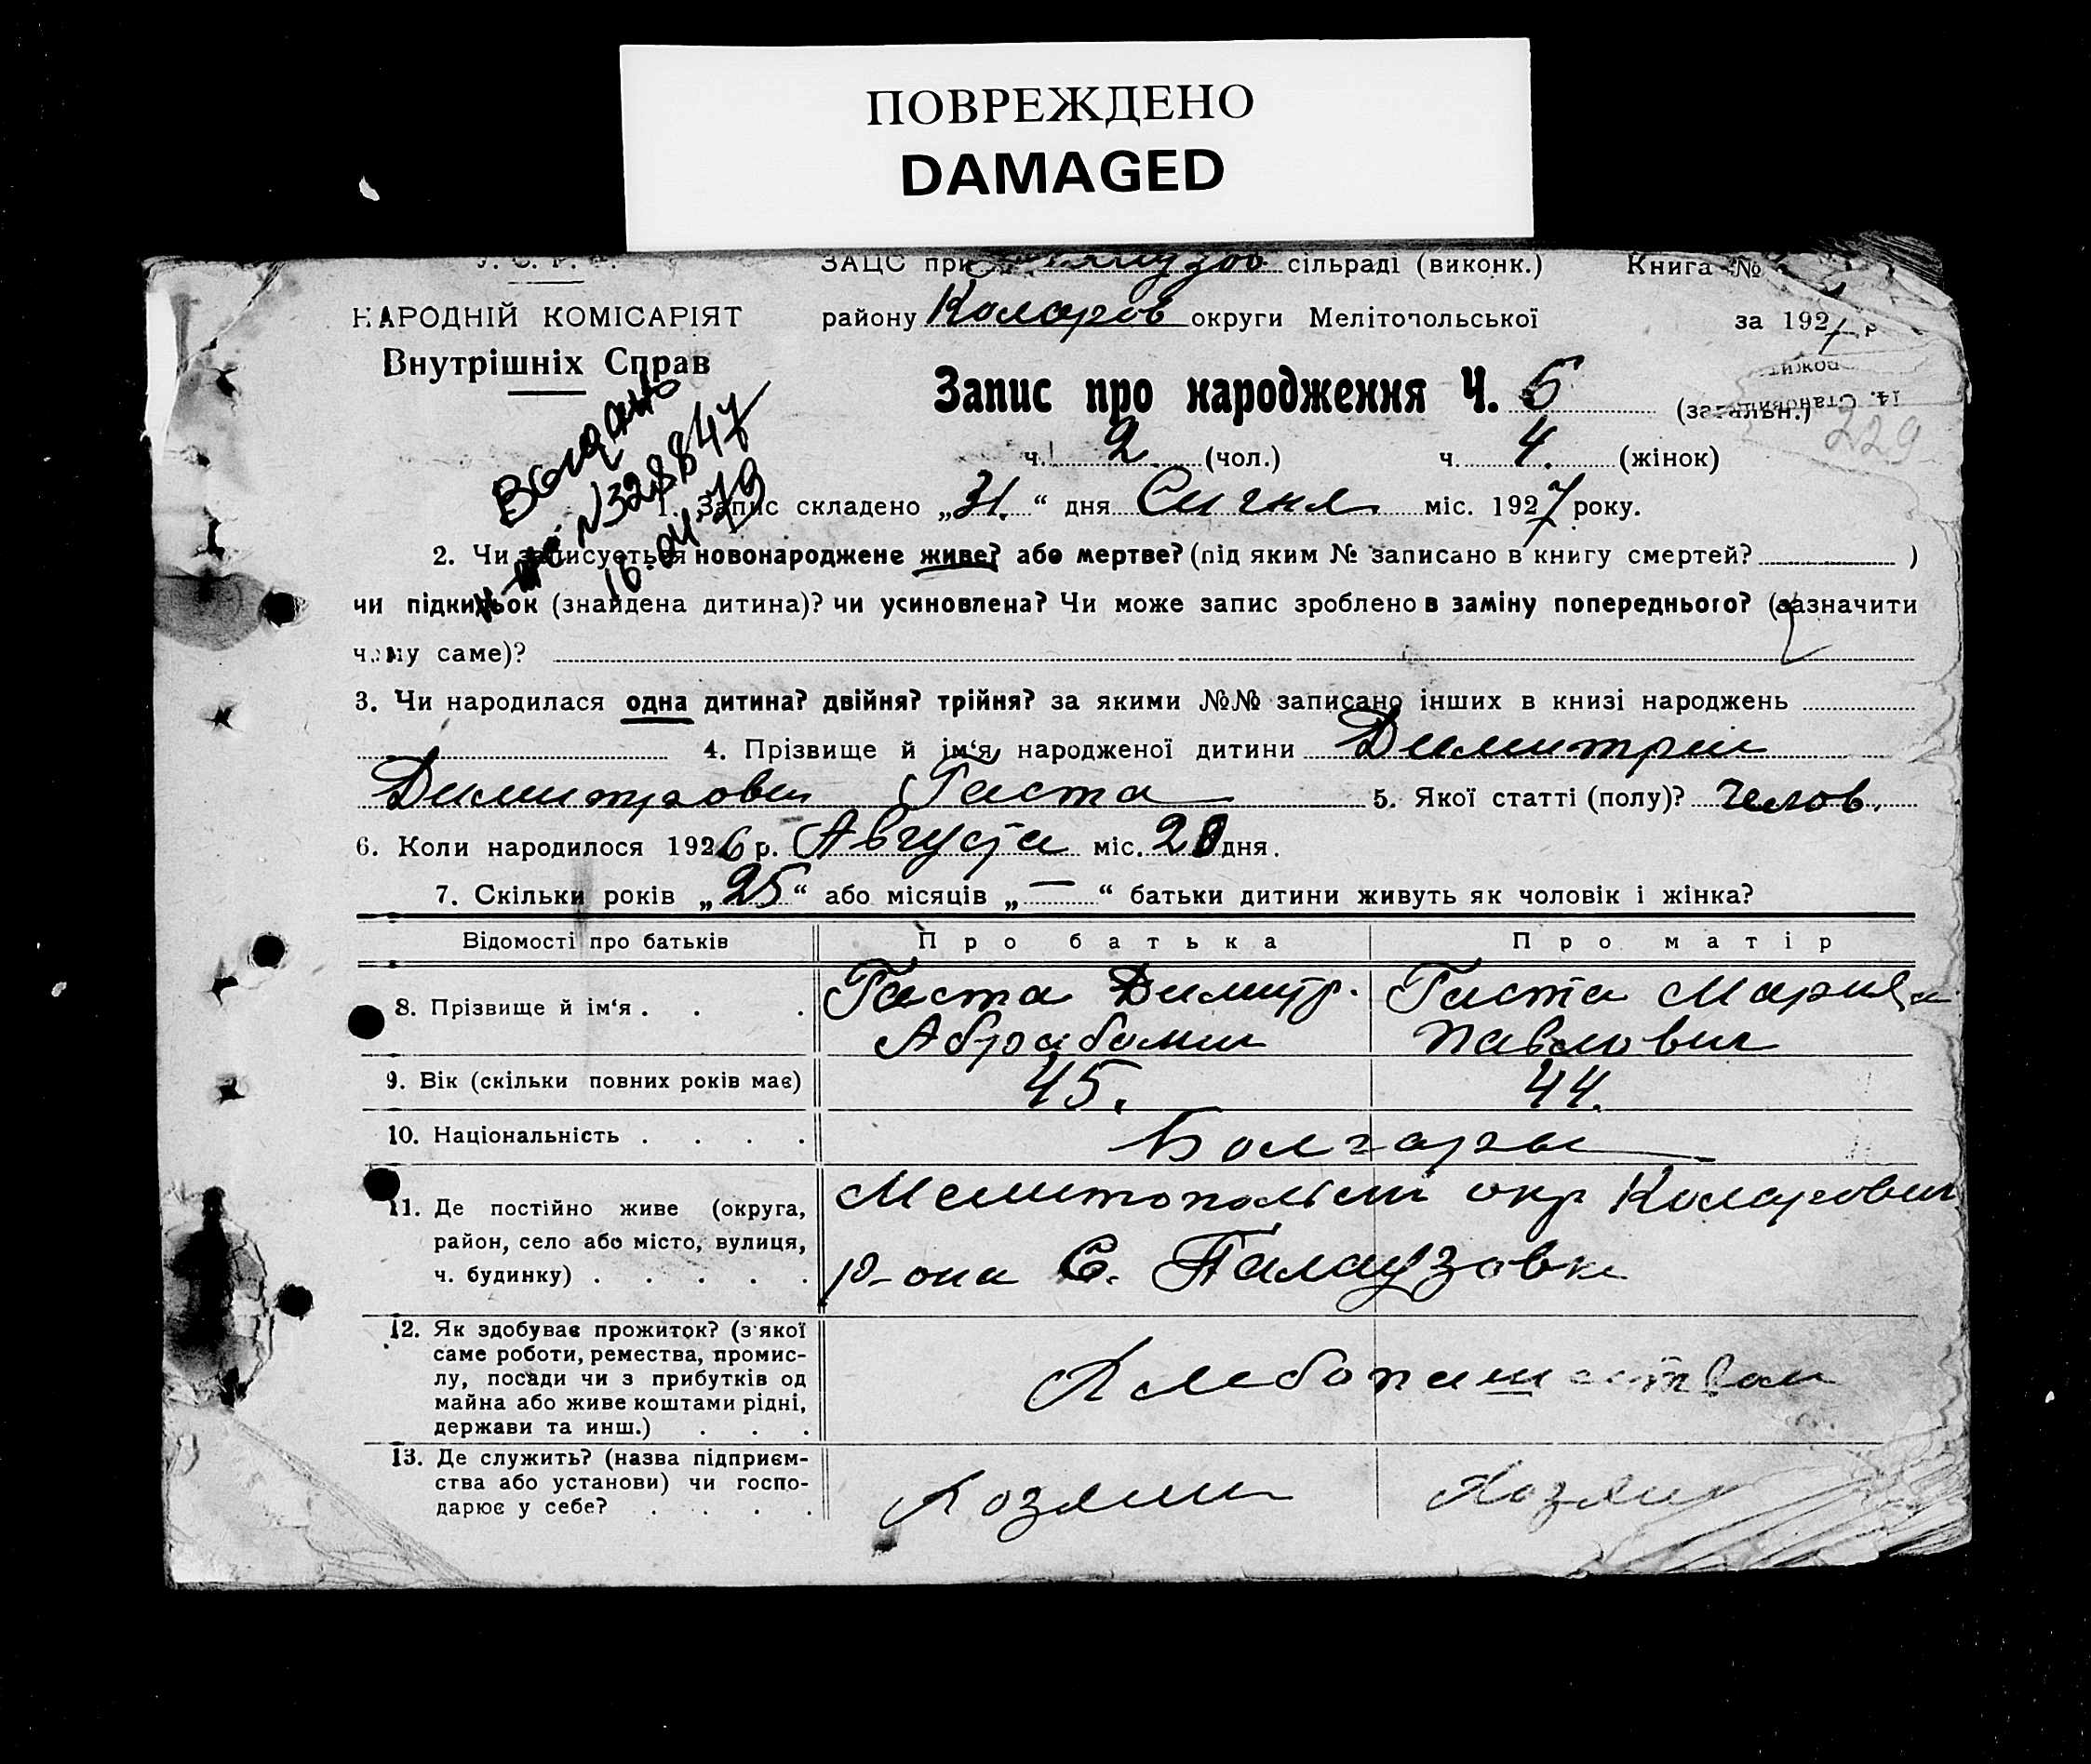 ПОВРЕЖДЕНО
DAMAGED
У. С. Р. Р.
ЗАЦС при сільраді (виконк.) Книга №
НАРОДНІЙ КОМІСАРІЯТ
району Коларов округи Мелітопольської за 1927 р
Внутрішніх Справ
Запис про народження Ч. 6 (загальн.)
229
ч. 2 (чол.) ч. 4. (жінок)
№328847
16.04.79
1. Запис складено „31.“ дня Сичня міс. 1927 року.
2. Чи записується новонароджене живе? або мертве? (під яким № записано в книгу смертей? )
чи підкидьок (знайдена дитина)? чи усиновлена? Чи може запис зроблено в заміну попереднього? (зазначити
чому саме)?
3. Чи народилася одна дитина? двійня? трійня? за якими №№ записано інших в книзі народжень
4. Прізвище й ім‘я народженої дитини Димитрий
Димитрович Таста 5. Якої статті (полу)? Челов.
6. Коли народилося 1926 р. Августа міс. 20 дня.
7. Скільки років „25“ або місяців „—“ батьки дитини живуть як чоловік і жінка?
Відомості про батьків Про батька Про матір
8. Прізвище й ім‘я . . . Таста Димитр. Таста Мария
Павлович
9. Вік (скільки повних років має) 45. 44.
10. Національність . . . . Болгары
11. Де постійно живе (округа,
район, село або місто, вулиця,
ч. будинку) . . . . .
Мелитопольск окр Коларовск
р-она С. Палаузовка
12. Як здобуває прожиток? (з якої
саме роботи, ремества, промис-
лу, посади чи з прибутків од
майна або живе коштами рідні,
держави та инш.) . . .
Хлебопашеством
13. Де служить? (назва підприєм-
ства або установи) чи госпо-
дарює у себе? . . . .
Хозяин Хозяин